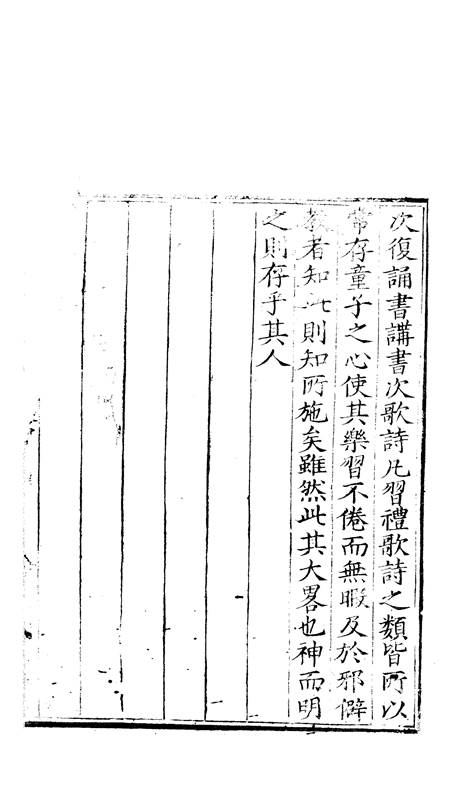 次復誦書講書次歌詩凡習禮歌詩之類皆所以
常存童子之心使其樂習不倦而無暇及於邪僻
教者知此則知所施矣雖然此其大畧也神而明
之則存乎其人